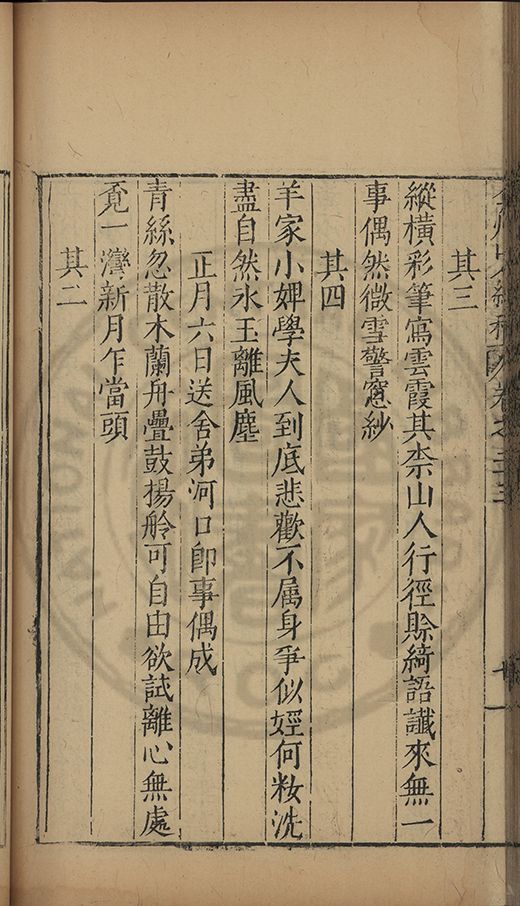 其三
縱橫彩筆寫雲霞其柰山人行徑賒綺語讖來無一
事偶然微雪警窻紗
其四
羊家小婢學夫人到底悲歡不属身爭似婬何籹洗
盡自然氷玉離風塵
正月六日送舍弟河口卽事偶成
青絲忽散木蘭舟疊鼓揚舲可自由欲試離心無處
覔一灣新月乍當頭
其二